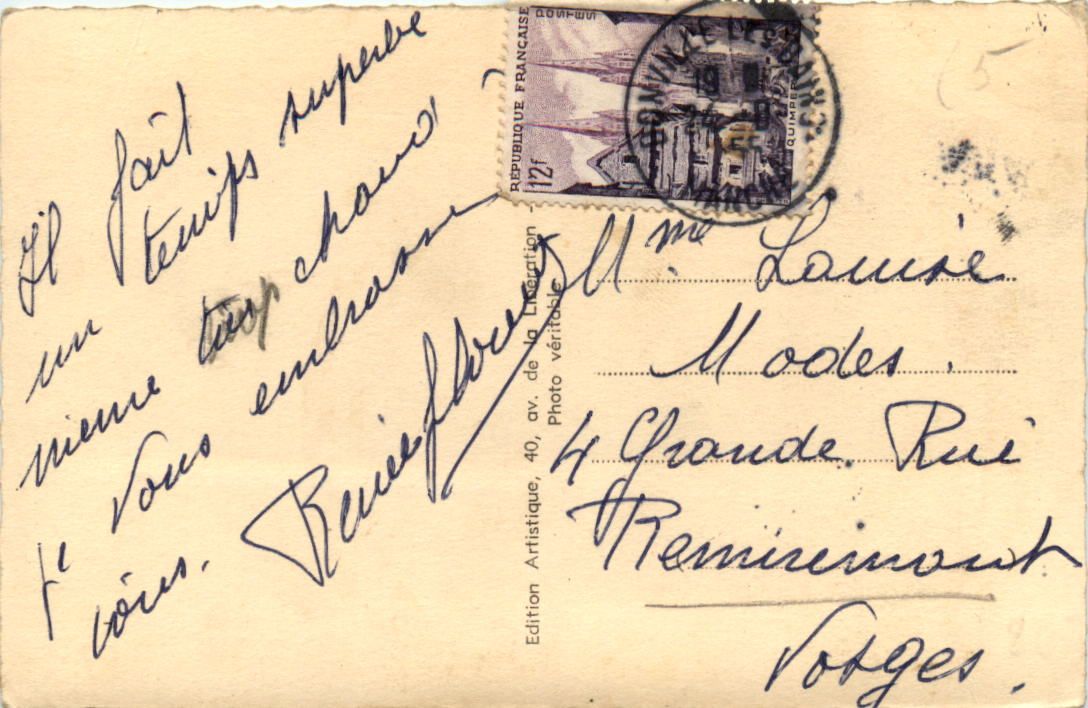 Il fait
un temps superbe
même trop chaud
Je vous embrasse
tous.
Renée
RÉPUBLIQUE FRANÇAISE
POSTES
12f
QUIMPER
DONVILLE LES BAINS
MANCHE
19
55
Edition Artistique, 40, av. de la Libération -
Photo véritable
Mme Louise
Modes.
4 Grande Rue
Remiremont
Vosges.
(5